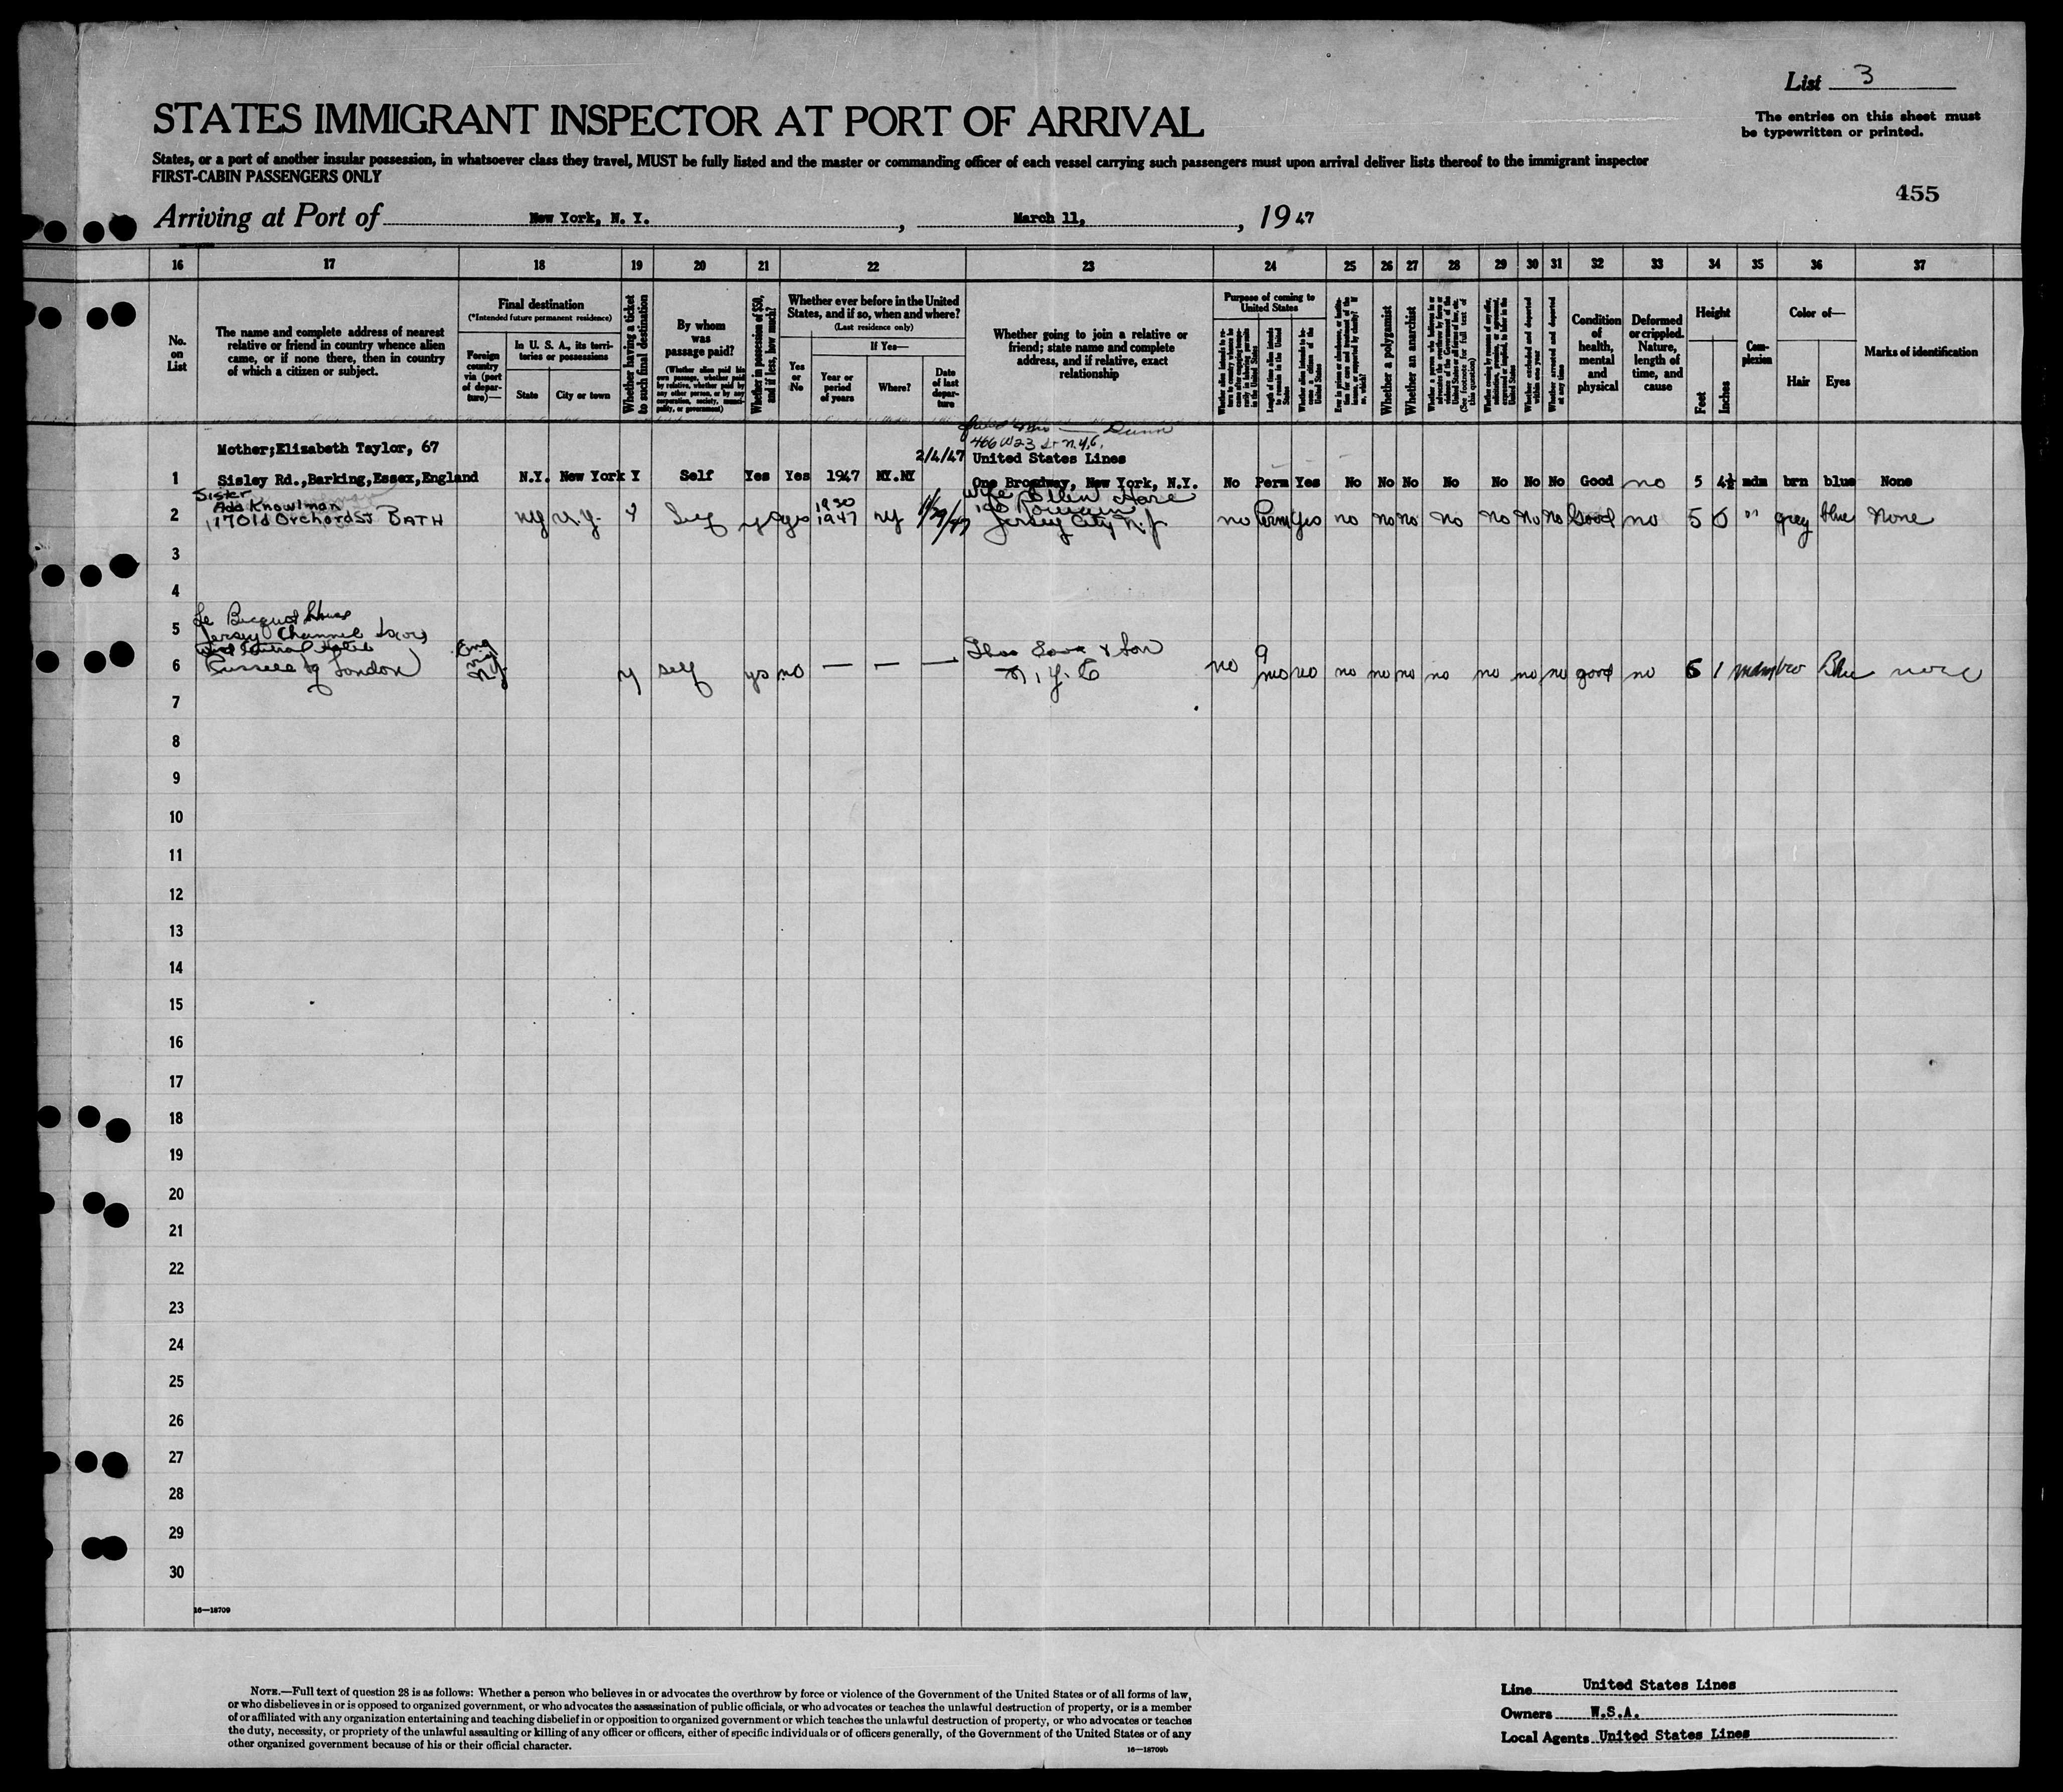 List 3
STATES IMMIGRANT INSPECTOR AT PORT OF ARRIVAL
The entries on this sheet must
be typewritten or printed.
States, or a port of another insular possession, in whatsoever class they travel, MUST be fully listed and the master or commanding officer of each vessel carrying such passengers must upon arrival deliver lists thereof to the immigrant inspector
FIRST-CABIN PASSENGERS ONLY
455
Arriving at Port of New York, N. Y. , March 11, , 19 47
16 17 18 19 20 21 22 23 24 25 26 27 28 29 30 31 32 33 34 35 36 37
No.
on
List
The name and complete address of nearest
relative or friend in country whence alien
came, or if none there, then in country
of which a citizen or subject.
Final destination
(*Intended future permanent residence)
Foreign
country
via (port
of depar-
ture)—
In U. S. A., its terri-
tories or possessions
State
City or town
Whether having a ticket
to such final destination
By whom
was
passage paid?
(Whether alien paid his
own passage, whether paid
by relative, whether paid by
any other person, or by any
corporation, society, munici-
pality, or government)
Whether in possession of $50,
and if less, how much?
Whether ever before in the United
States, and if so, when and where?
(Last residence only)
Yes
or
No
If Yes—
Year or
period
of years
Where?
Date
of last
depar-
ture
Whether going to join a relative or
friend; state name and complete
address, and if relative, exact
relationship
Purpose of coming to
United States
Length of time alien intends
to remain in the United
States
Whether a polygamist
Whether an anarchist
(See footnote for full text of
this question)
Whether excluded and deported
within one year
Whether arrested and deported
at any time
Condition
of
health,
mental
and
physical
Deformed
or crippled.
Nature,
length of
time, and
cause
Height
Feet
Inches
Com-
plexion
Color of—
Hair
Eyes
Marks of identification
Dunn
466 W 23 St N.Y.C.
Mother;Elizabeth Taylor, 67 2/4/47 United States Lines
1 Sisley Rd.,Barking,Essex,England N.Y. New York Y Self Yes Yes 1947 NY.NY One Broadway, New York, N.Y. No Perm Yes No No No No No No No Good no 5 4½ mdm brn blue None
Sister
Ada Knowlman 1930 wife Ellen Hare
2 17 Old Orchard St BATH NY N.Y. Y Self yes yes 1947 NY Jersey City N.J no Perm Yes no no no no no no no Good no 5 6 " grey blue None
3
4
5 Jersey Channel
6 Russell Sq London Eng y self yes no — — — & Son
N.Y.C no 9
mos no no no no no no no no good no 5 1 Blue none
7
8
9
10
11
12
13
14
15
16
17
18
19
20
21
22
23
24
25
26
27
28
29
30
16—18709
NOTE.—Full text of question 28 is as follows: Whether a person who believes in or advocates the overthrow by force or violence of the Government of the United States or of all forms of law,
or who disbelieves in or is opposed to organized government, or who advocates the assassination of public officials, or who advocates or teaches the unlawful destruction of property, or is a member
of or affiliated with any organization entertaining and teaching disbelief in or opposition to organized government or which teaches the unlawful destruction of property, or who advocates or teaches
the duty, necessity, or propriety of the unlawful assaulting or killing of any officer or officers, either of specific individuals or of officers generally, of the Government of the United States or of any
other organized government because of his or their official character.
16—18709b
Line United States Lines
Owners W.S.A.
Local Agents United States Lines